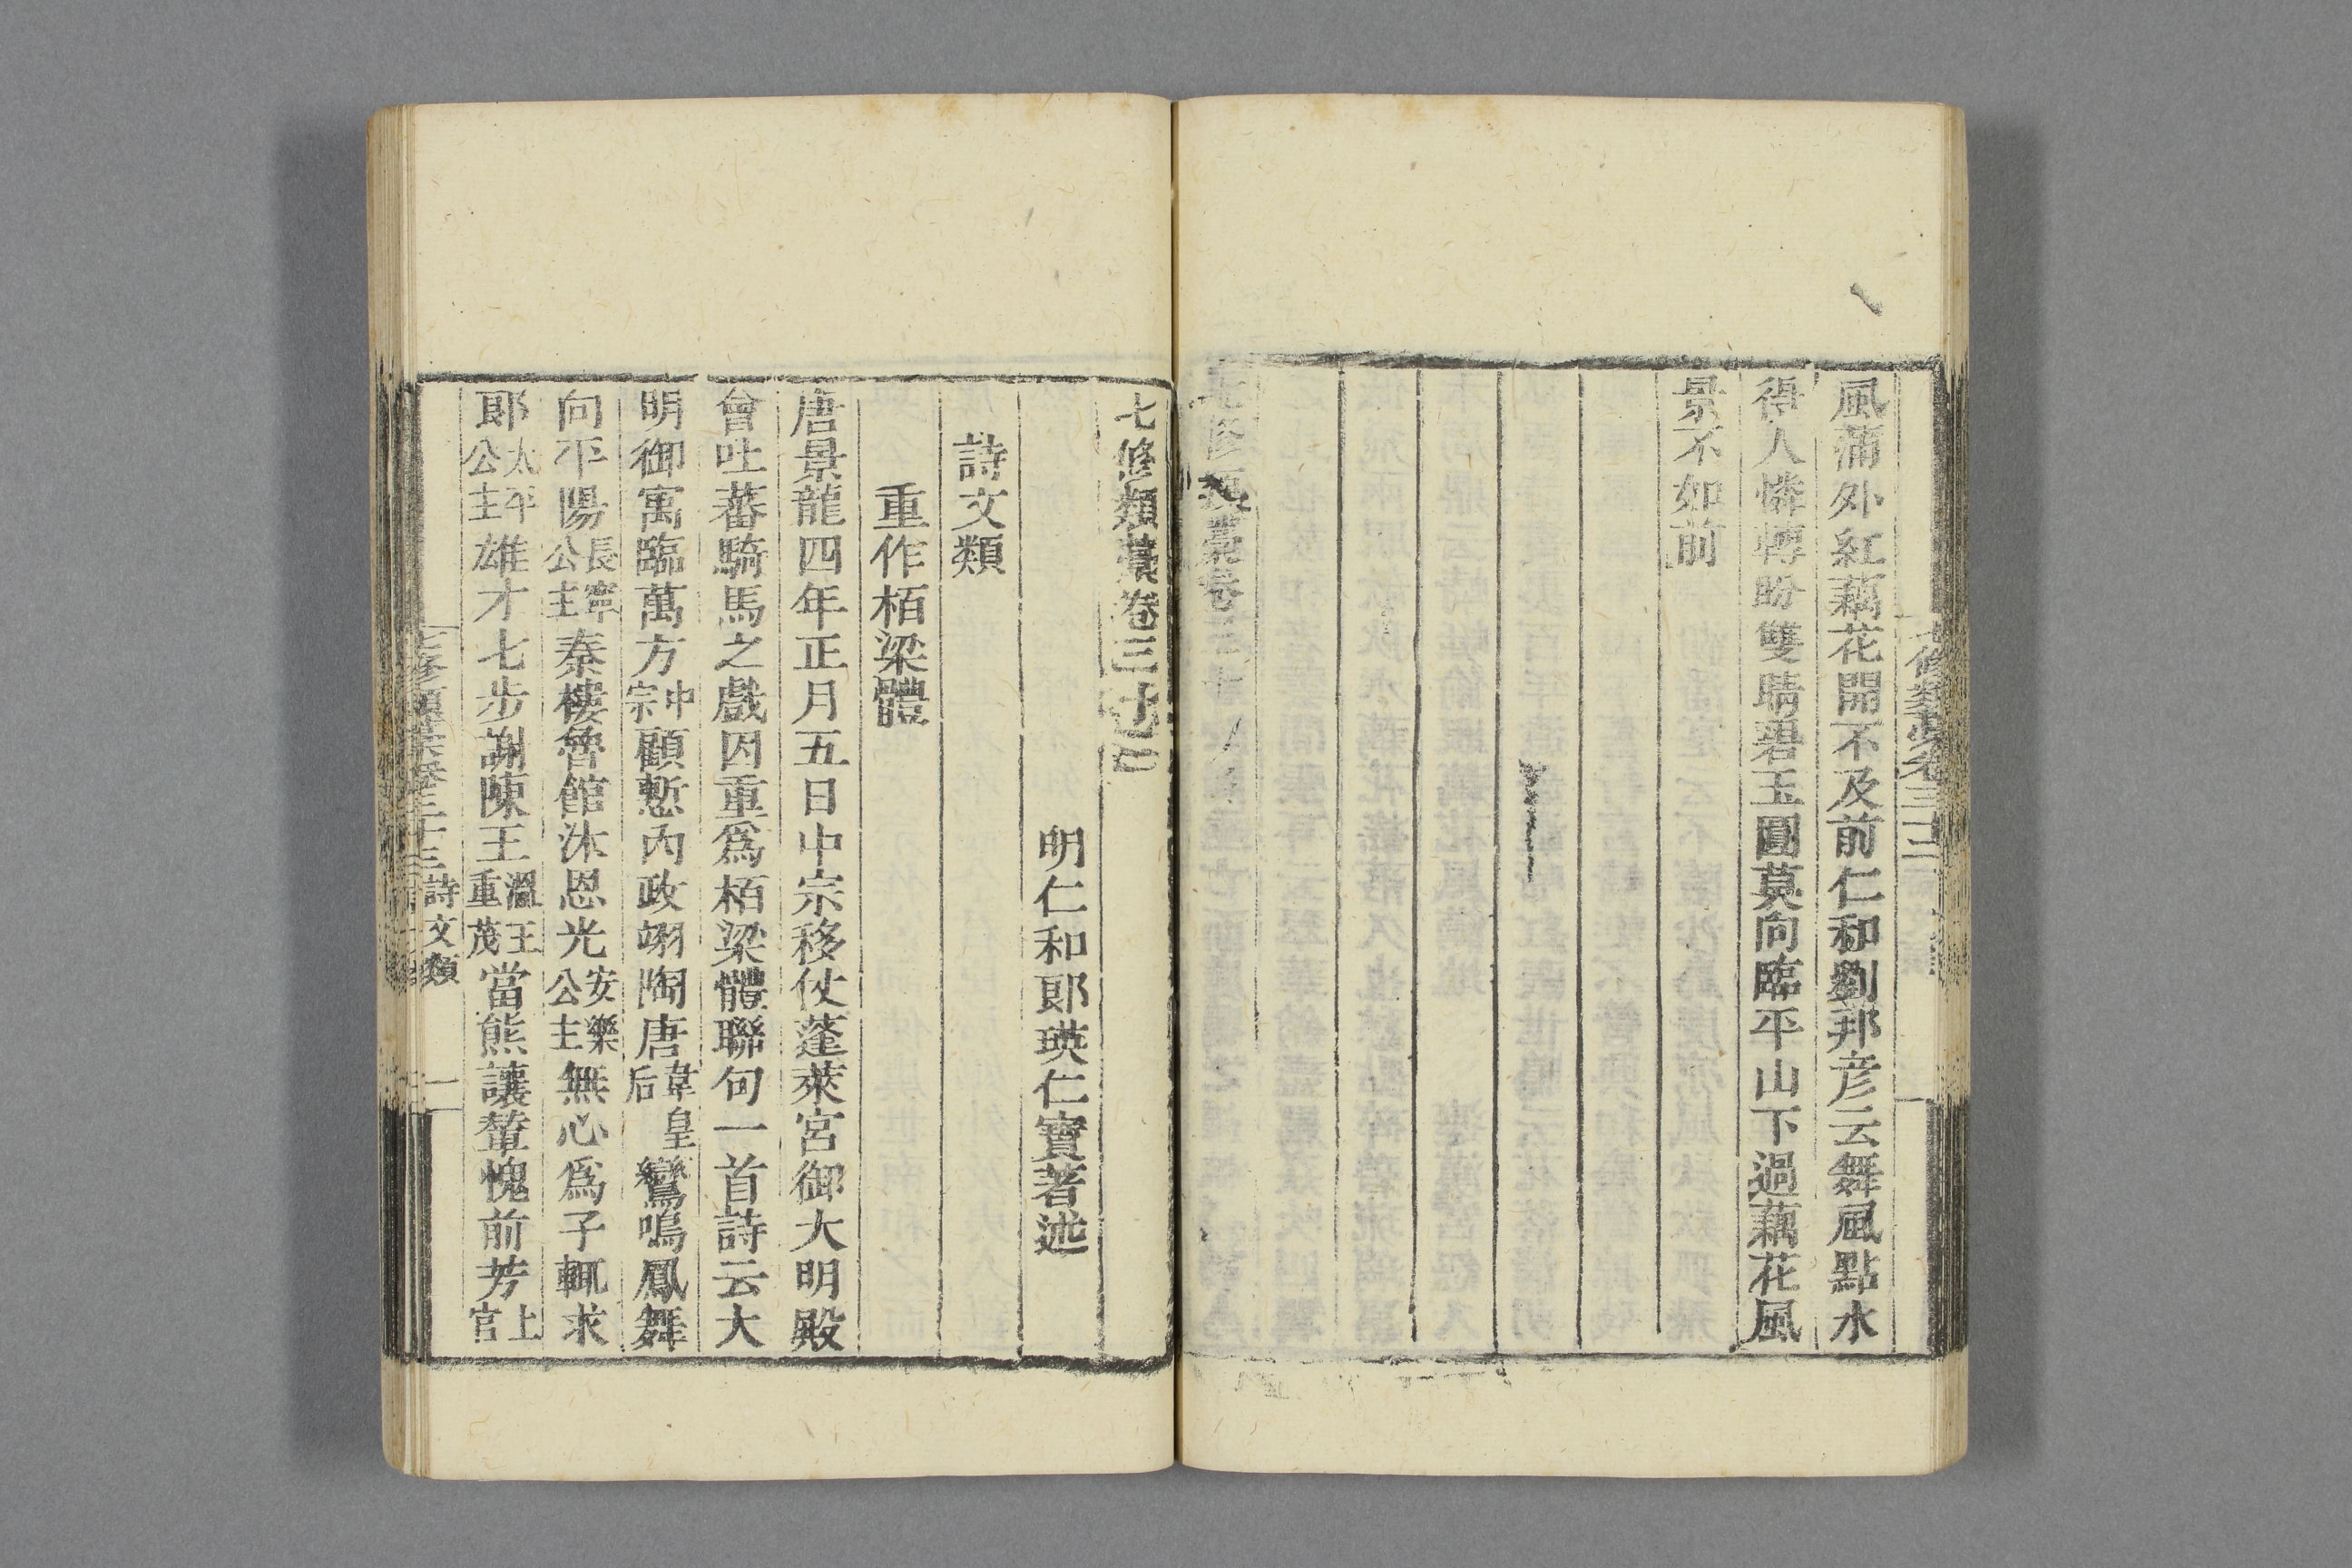 風蒲外紅藕花開不及前仁和劉邦彦云舞風點水
得人憐轉盼雙睛碧玉圓莫向臨平山下過藕花風
景不如前
七修類藁卷三十
七修類藁卷三十三
明仁和郎瑛仁寶著述
詩文類
重作栢梁體
唐景龍四年正月五日中宗移仗蓬萊宮御大明殿
會吐蕃騎馬之戲因重爲栢梁體聯句一首詩云大
明御寓臨萬方中宗顧慙內政翊陶唐韋皇后鸞鳴鳳舞
向平陽長寧公主秦樓魯館沐恩光安樂公主無心爲子輒求
郎太平公主雄才七步謝陳王溫王重茂當熊讓輦愧前芳上官
七修類藁卷三十三 詩文類 一